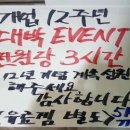 개업 12주년
대박 EVENT
전원장 3시간
12년 개업 계속 성원
해주세요
감사합니다
(유흥껨 별도)